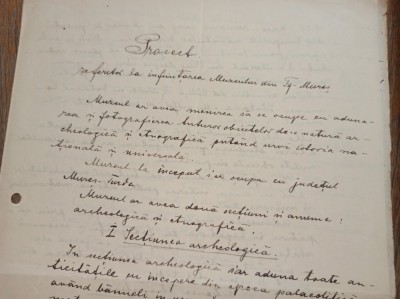 Proiect
referitor la înființarea Muzeului din Tg-Mureș
Muzeul ar avea menirea să se ocupe cu aduna-
rea și fotografierea tuturor obiectelor de o natură ar-
cheologică și etnografică putând servi istoria na-
țională și universală.
Muzeul la început s'ar ocupa cu județul
Mureș-Turda.
Muzeul ar avea două secțiuni și anume:
archeologică și etnografică.
I Secțiunea archeologică.
În secțiunea archeologică s'ar aduna toate an-
ticitățile cu începere din epoca paleolitică
având